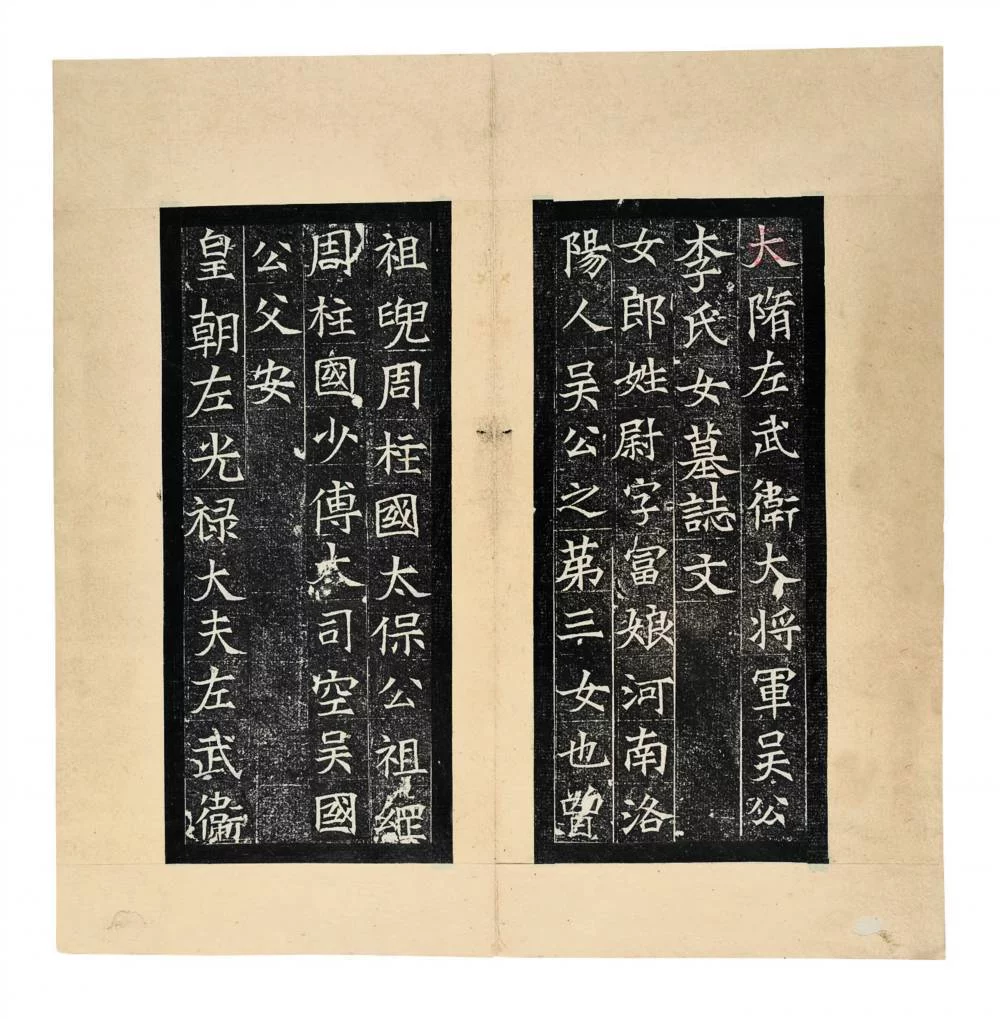 大隋左武衛大将軍吴公
李氏女墓誌文
女郎姓尉字冨娘河南洛
陽人吴公之苐三女也曽
祖兜周柱國太保公祖綱
周柱國少傅大司空吴國
公父安
皇朝左光禄大夫左武衛